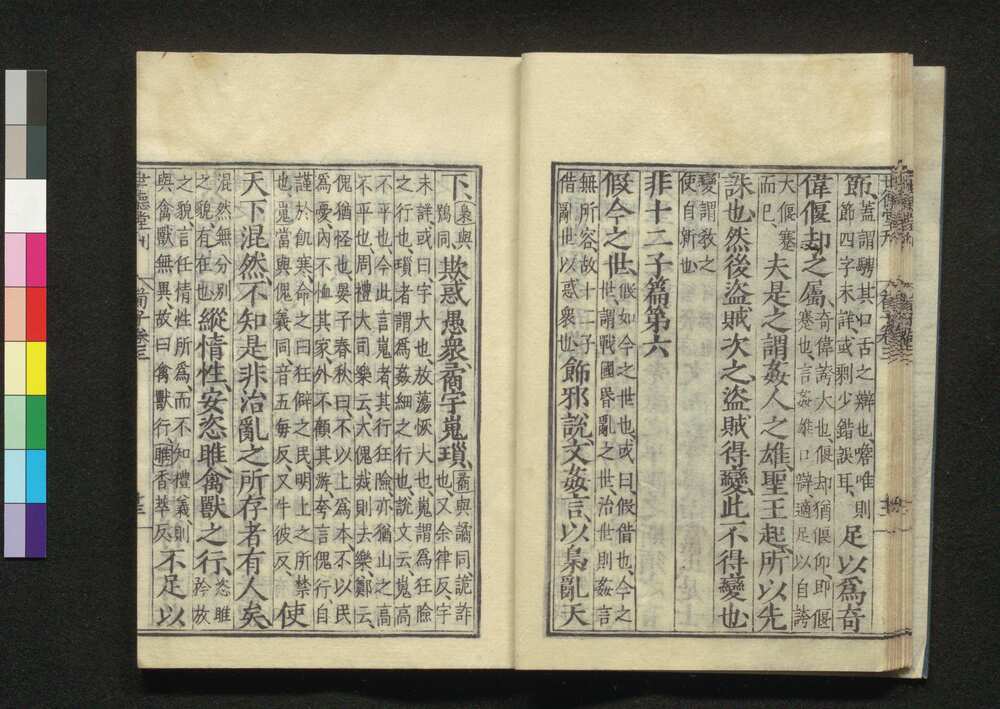 節、蓋謂騁其口舌之辯也嚾唯則
節四字未詳或剩少錯誤耳、足以爲奇
偉偃却之屬、奇偉誇大也、偃却猶偃仰、即偃
蹇也、言姦雄口辯、適足以自誇
大偃蹇
而已、夫是之謂姦人之雄聖王起、所以先
誅也、然後盜賊次之、盜賊得變、此不得變也、
變謂教之
使自新也
非十二子篇第六
假今之世、假如今之世也、或曰假借也、今之
世、謂戰國昏亂之世、治世則姦言
無所容、故十二子
借亂世以惑衆也、飾邪說、文姦言以梟亂天
下、梟與
鴞同、欺惑愚衆、矞宇嵬瑣、矞與譎同、詭詐
也、又余律反、宇
未詳、或曰宇大也、放蕩恢大也、嵬謂爲狂險
之行也、瑣者謂爲姦細之行也、說文云、嵬高
不平也、今此言嵬者、其行狂險、亦猶山之高
不平也、周禮大司樂云、大傀裁則去樂、鄭云、
傀猶怪也、晏子春秋曰、不以上爲本、不以民
爲憂、內不恤其家、外不顧其游、夸言傀行、自
謹於飢寒、命之曰狂僻之民、明上之所禁
也、嵬當與傀義同、音五每反、又牛彼反、使
天下混然、不知是非治亂之所存者有人矣、
混然無分別
之貌、存在也、縱情性、安恣睢、禽獸之行、恣睢
矜放
之貌、言任情性所爲、而不知禮義、則
與禽獸無異、故曰禽獸行、睢香萃反、不足以
世德堂刊
荀子卷三